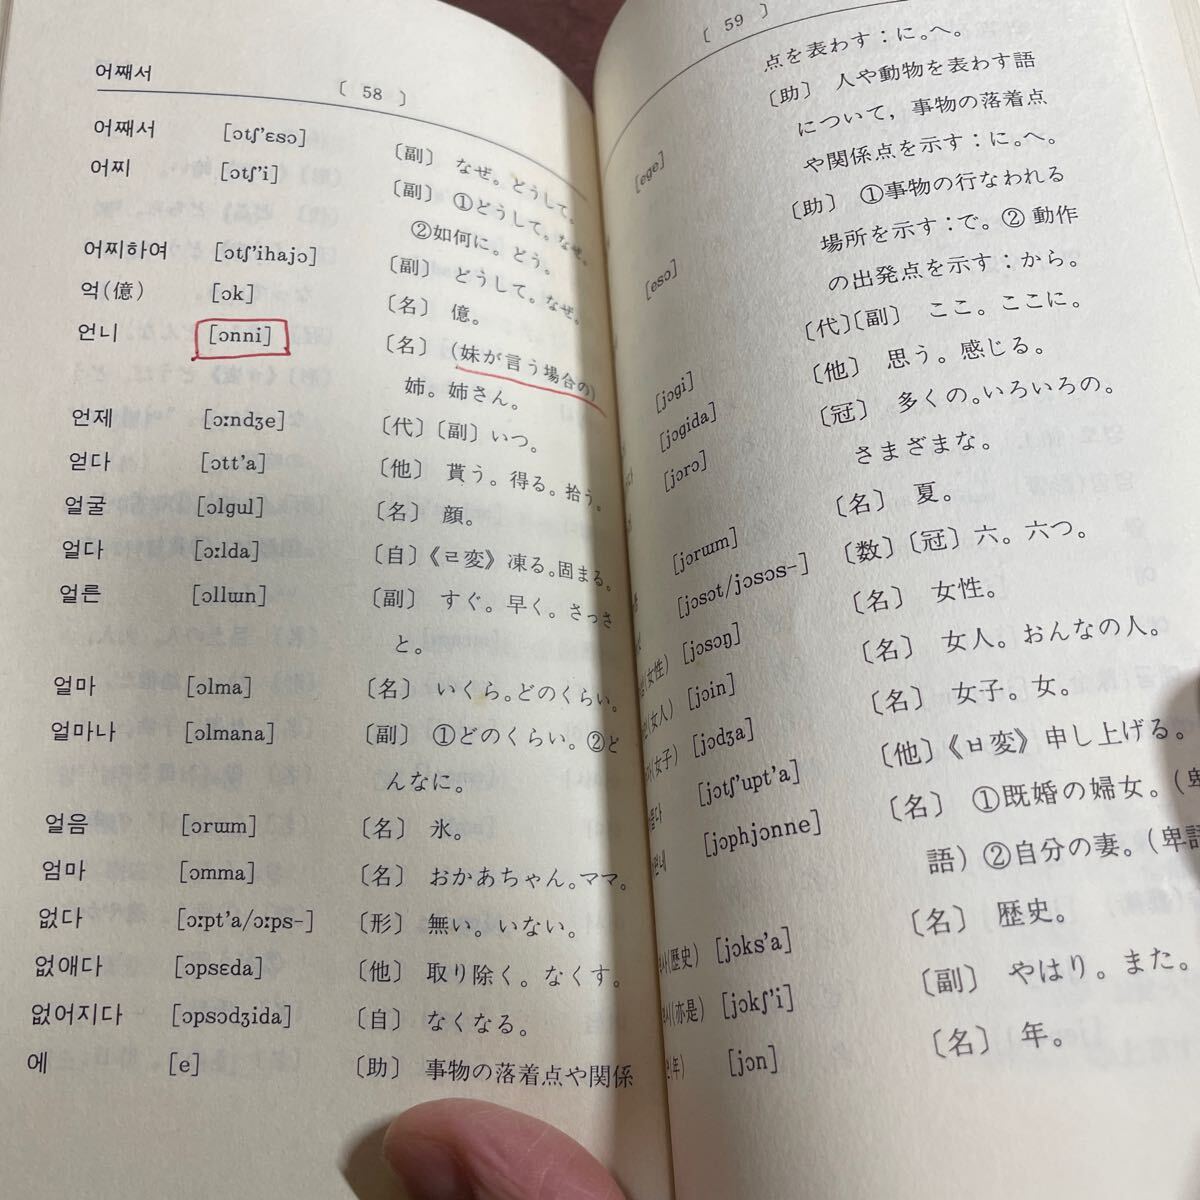 어째서
〔 58 〕
어째서 [ɔtʃ'ɛsɔ] 〔副〕 なぜ。どうして。
어찌 [ɔtʃ'i] 〔副〕 ①どうして。なぜ。
②如何に。どう。
어찌하여 [ɔtʃ'ihajɔ] 〔副〕 どうして。なぜ。
억(億) [ɔk] 〔名〕 億。
언니 [ɔnni] 〔名〕 (妹が言う場合の)
姉。姉さん。
언제 [ɔːndʒe] 〔代〕〔副〕 いつ。
얻다 [ɔtt'a] 〔他〕 貰う。得る。拾う。
얼굴 [ɔlgul] 〔名〕 顔。
얼다 [ɔːlda] 〔自〕《ㄹ変》凍る。固まる。
얼른 [ɔllɯn] 〔副〕 すぐ。早く。さっさ
と。
얼마 [ɔlma] 〔名〕 いくら。どのくらい。
얼마나 [ɔlmana] 〔副〕 ①どのくらい。②ど
んなに。
얼음 [ɔrɯm] 〔名〕 氷。
엄마 [ɔmma] 〔名〕 おかあちゃん。ママ。
없다 [ɔːpt'a/ɔːps-] 〔形〕 無い。いない。
없애다 [ɔpsɛda] 〔他〕 取り除く。なくす。
없어지다 [ɔpsɔdʒida] 〔自〕 なくなる。
에 [e] 〔助〕 事物の落着点や関係
〔 59 〕
点を表わす：に。へ。
[ege] 〔助〕 人や動物を表わす語
について，事物の落着点
や関係点を示す：に。へ。
[esɔ] 〔助〕 ①事物の行なわれる
場所を示す：で。② 動作
の出発点を示す：から。
[jɔgi] 〔代〕〔副〕 ここ。ここに。
[jɔgida] 〔他〕 思う。感じる。
[jɔrɔ] 〔冠〕 多くの。いろいろの。
さまざまな。
[jɔrɯm] 〔名〕 夏。
[jɔsɔt/jɔsɔs-] 〔数〕〔冠〕 六。六つ。
(女性) [jɔsɔŋ] 〔名〕 女性。
(女人) [jɔin] 〔名〕 女人。おんなの人。
(女子) [jɔdʒa] 〔名〕 女子。女。
[jɔtʃ'upt'a] 〔他〕《ㅂ変》申し上げる。
[jɔphjɔnne] 〔名〕 ①既婚の婦女。(卑
語) ②自分の妻。(卑語
(歴史) [jɔks'a] 〔名〕 歴史。
(亦是) [jɔkʃ'i] 〔副〕 やはり。また。
年) [jɔn] 〔名〕 年。